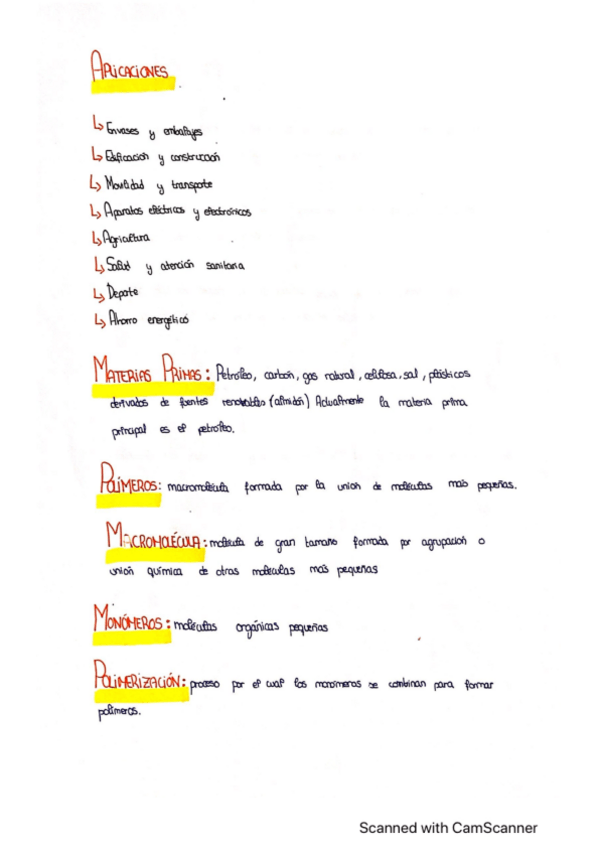 APLICACIONES
↳ Envases y embalajes
↳ Edificación y construcción
↳ Movilidad y transporte
↳ Aparatos eléctricos y electrónicos
↳ Agricultura
↳ Salud y atención sanitaria
↳ Deporte
↳ Ahorro energético
MATERIAS PRIMAS: Petróleo, carbón, gas natural, celulosa, sal, plásticos
derivados de fuentes renovables (almidón) Actualmente la materia prima
principal es el petróleo.
POLÍMEROS: macromolécula formada por la unión de moléculas más pequeñas.
MACROMOLÉCULA: molécula de gran tamaño formada por agrupación o
unión química de otras moléculas más pequeñas
MONÓMEROS: moléculas orgánicas pequeñas
POLIMERIZACIÓN: proceso por el cual los monómeros se combinan para formar
polímeros.
Scanned with CamScanner